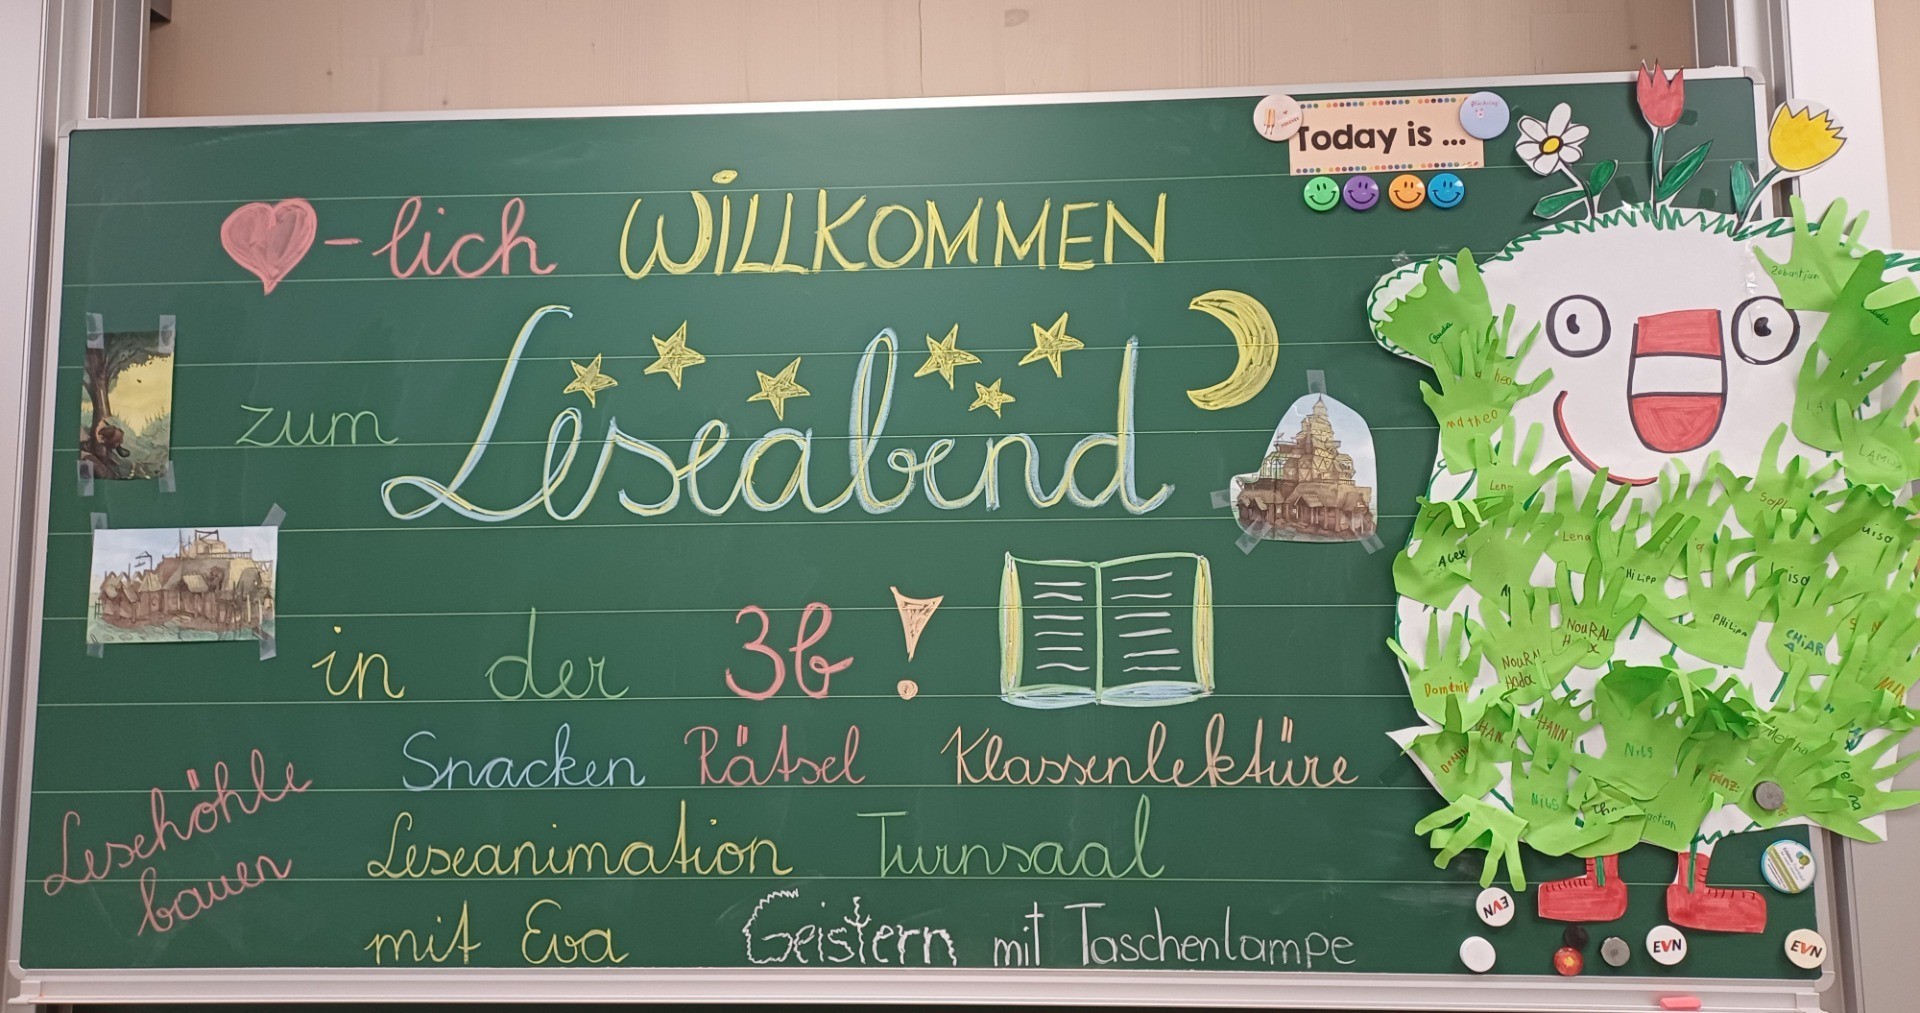 -lich WILLKOMMEN
zum Leseabend
in der 3b!
Snacken Rätsel Klassenlektüre
Lesehöhle
bauen
Leseanimation Turnsaal
mit Eva Geistern mit Taschenlampe
Today is ...
Claudia
matheo
Lena
Lena
Alex
PHiLipp
PHiLipp
CHiARA
NOURAL
Dominik
HANN
Nils
Nils
EVN
EVN
EVN